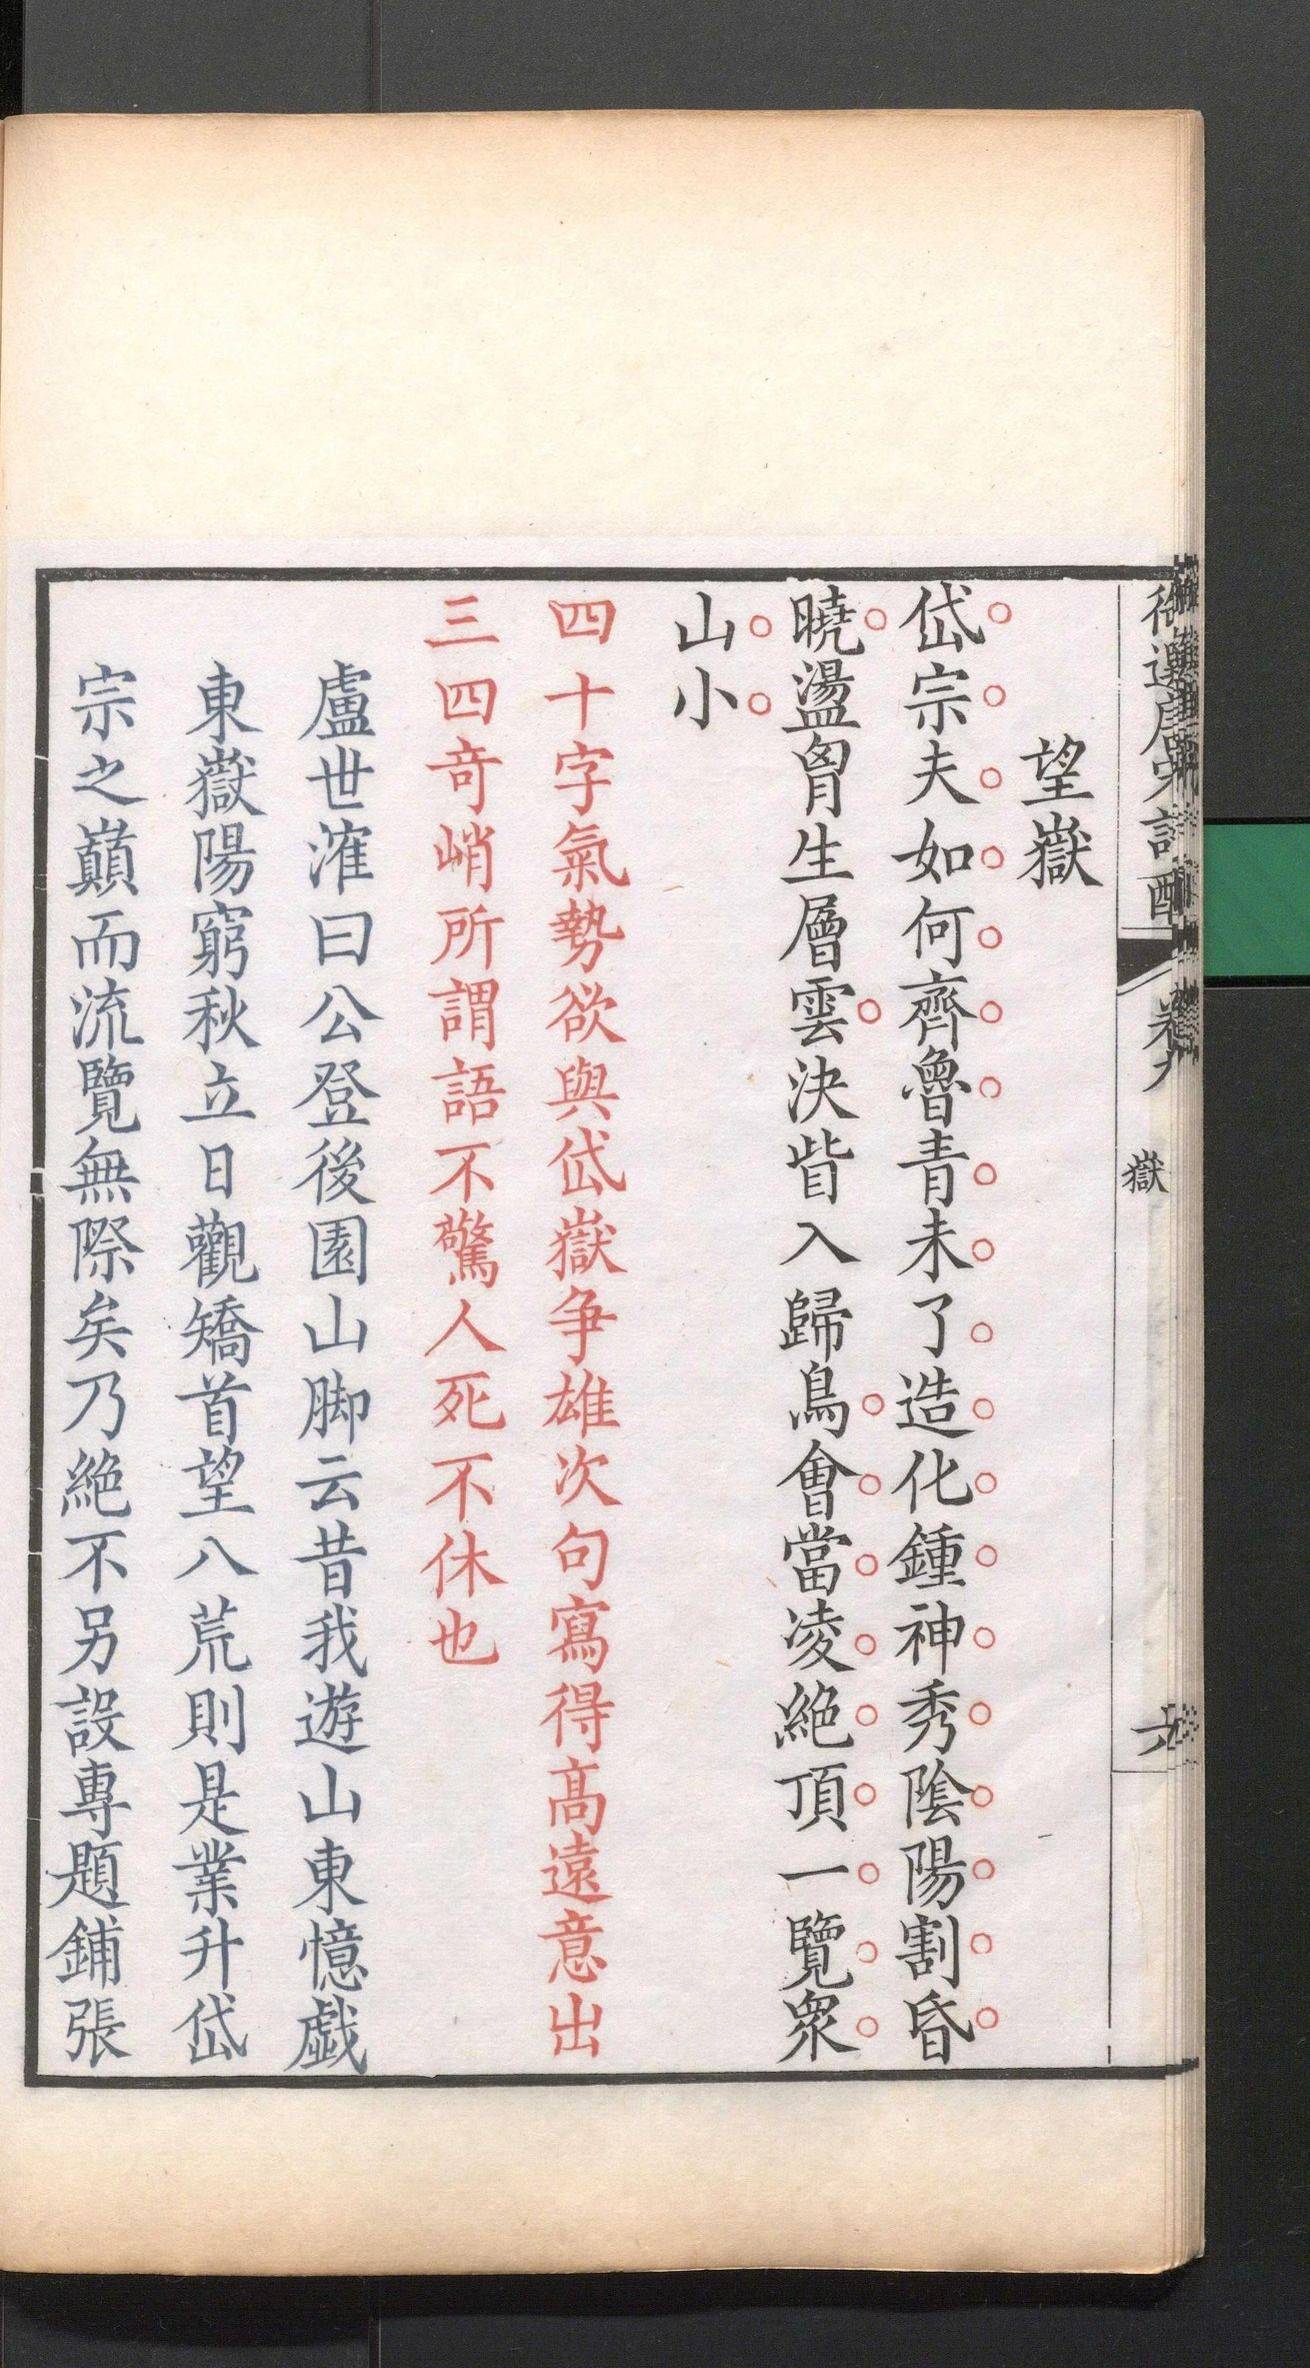 望嶽
岱宗夫如何齊魯青未了造化鍾神秀陰陽割昏
曉盪胷生層雲決眥入歸鳥會當凌絶頂一覽衆
山小
四十字氣勢欲與岱嶽争雄次句寫得髙遠意出
三四竒峭所謂語不驚人死不休也
盧世㴶曰公登後園山脚云昔我遊山東憶戯
東嶽陽窮秋立日觀矯首望八荒則是業升岱
宗之巔而流覽無際矣乃絶不另設專題鋪張
嶽